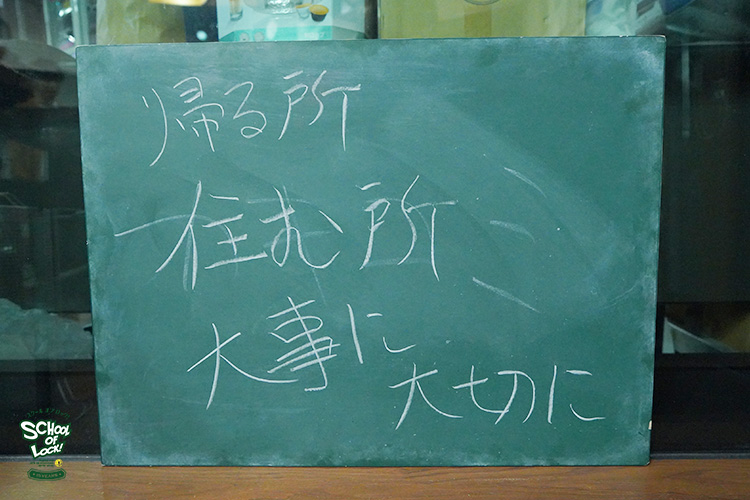 帰る所
住む所
大事に
大切に
SCHOOL
OF
LOCK!